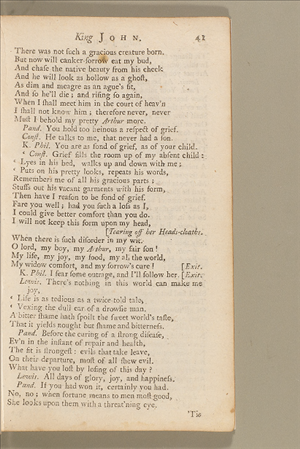 King JOHN. 41
There was not such a gracious creature born.
But now will canker-sorrow eat my bud,
And chase the native beauty from his cheek
And he will look as hollow as a ghost,
As dim and meagre as an ague's fit,
And so he'll die; and rising so again,
When I shall meet him in the court of heav'n
I shall not know him; therefore never, never
Must I behold my pretty Arthur more.
Pand. You hold too heinous a respect of grief.
Const. He talks to me, that never had a son.
K. Phil. You are as fond of grief, as of your child.
‘ Const. Grief fills the room up of my absent child:
‘ Lyes in his bed, walks up and down with me;
‘ Puts on his pretty looks, repeats his words,
Remembers me of all his gracious parts;
Stuffs out his vacant garments with his form,
Then have I reason to be fond of grief.
Fare you well; had you such a loss as I,
I could give better comfort than you do.
I will not keep this form upon my head,
[Tearing off her Head-cloaths.
When there is such disorder in my wit.
O lord, my boy, my Arthur, my fair son!
My life, my joy, my food, my all the world,
My widow comfort, and my sorrow's cure! [Exit.
K. Phil. I fear some outrage, and I'll follow her. [Exit.
Lewis. There's nothing in this world can make me
joy,
‘ Life is as tedious as a twice told tale,
‘ Vexing the dull ear of a drowsie man.
A bitter shame hath spoilt the sweet world's taste,
That it yields nought but shame and bitterness.
Pand. Before the curing of a strong disease,
Ev'n in the instant of repair and health,
The fit is strongest: evils that take leave,
On their departure, most of all shew evil.
What have you lost by losing of this day?
Lewis. All days of glory, joy, and happiness.
Pand. If you had won it, certainly you had.
No, no; when fortune means to men most good,
She looks upon them with a threat'ning eye.
'Tis